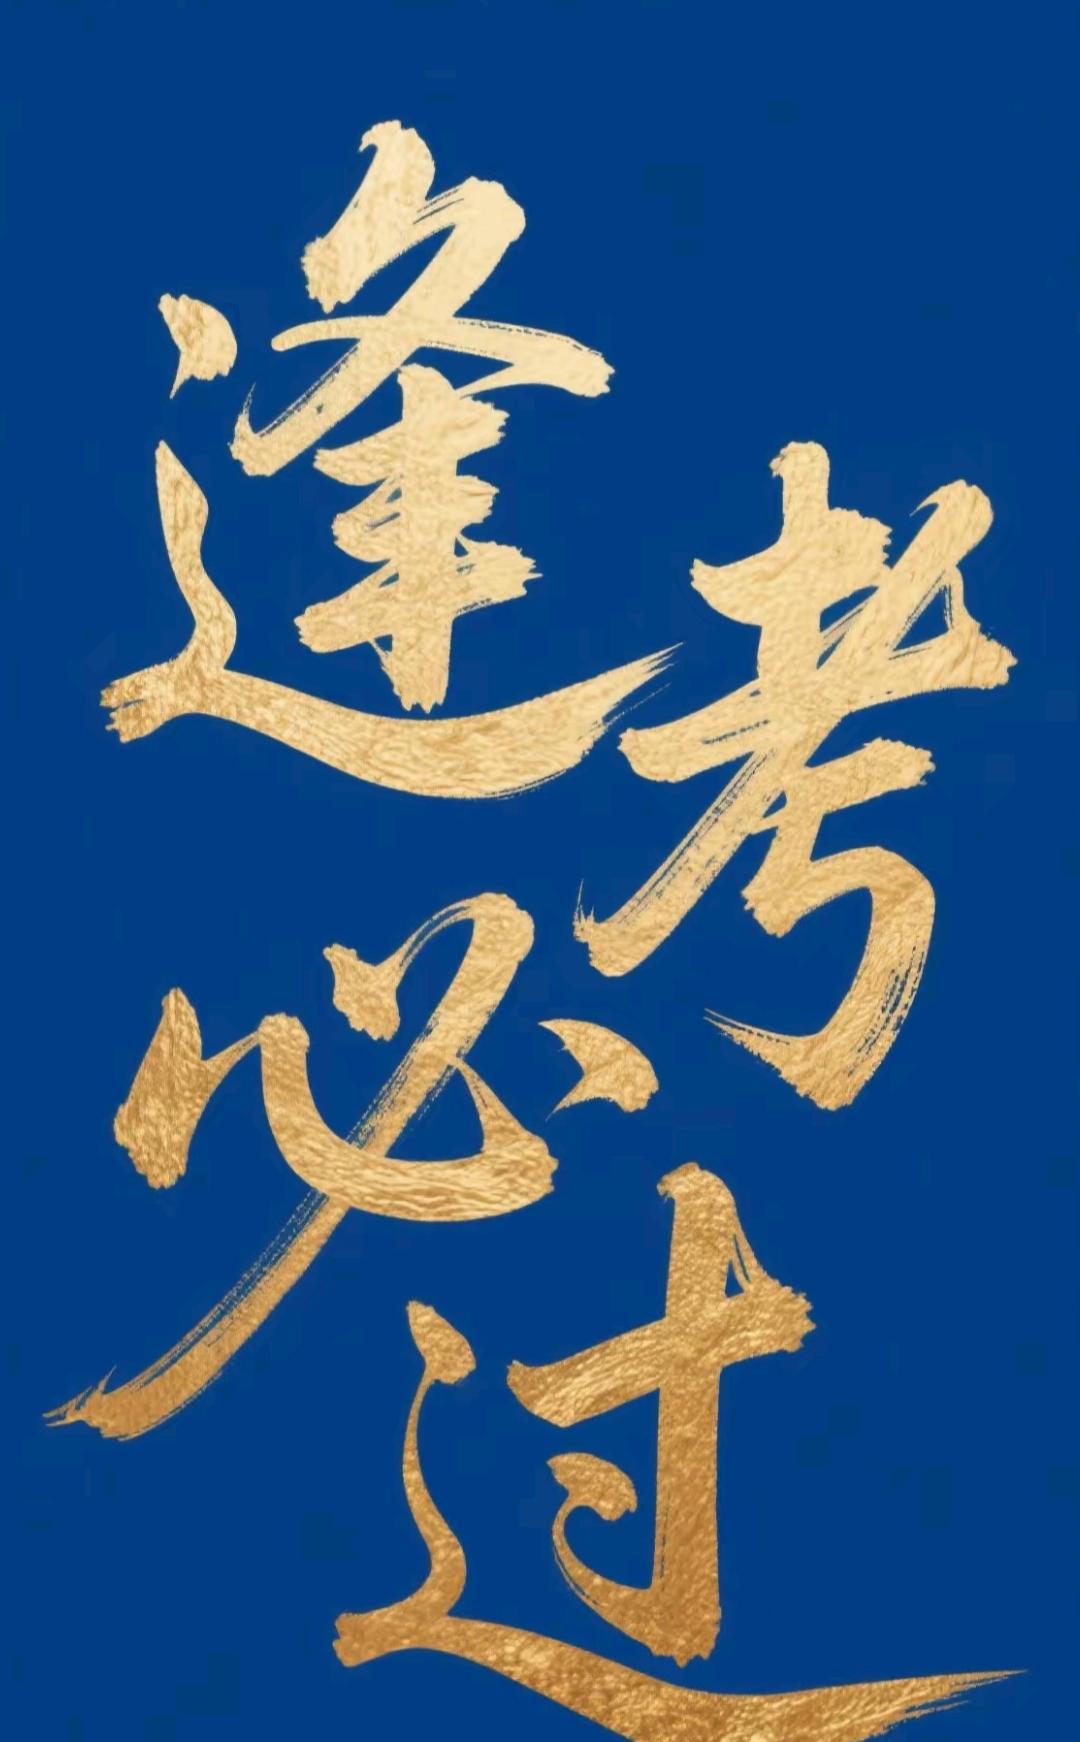 逢考
必过